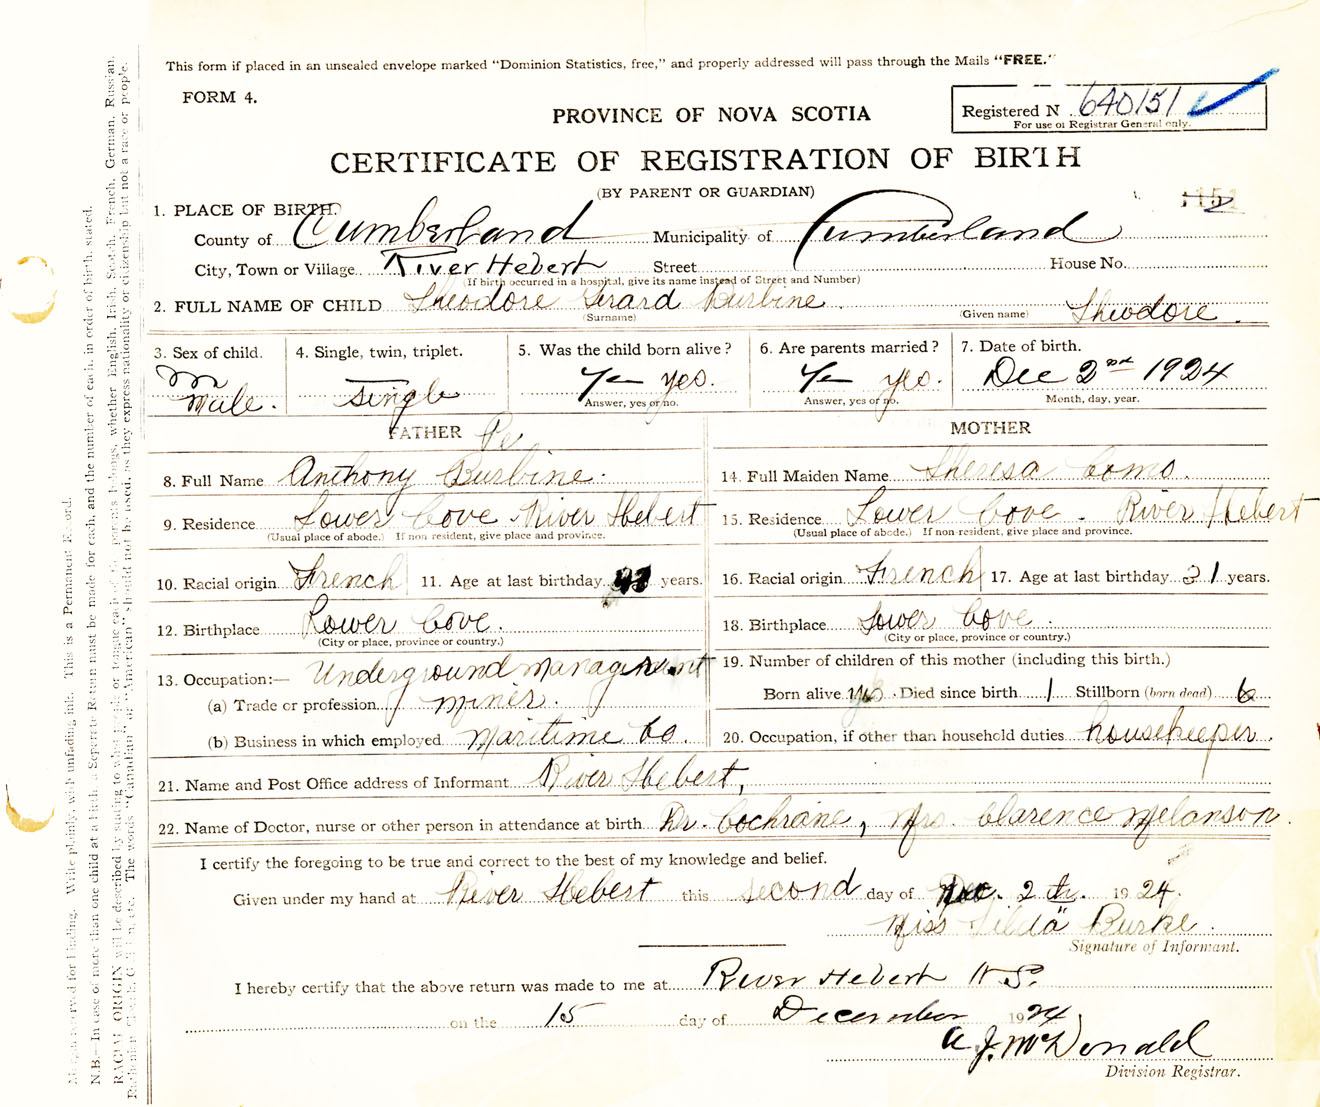 This form if placed in an unsealed envelope marked "Dominion Statistics, free," and properly addressed will pass through the Mails "FREE."
FORM 4.
PROVINCE OF NOVA SCOTIA
Registered N 640151
For use of Registrar General only.
CERTIFICATE OF REGISTRATION OF BIRTH
(BY PARENT OR GUARDIAN)
1. PLACE OF BIRTH.
County of Cumberland Municipality of Cumberland
City, Town or Village River Hebert Street House No.
(If birth occurred in a hospital, give its name instead of Street and Number)
2. FULL NAME OF CHILD Theodore Gerard Burbine (Surname) (Given name) Theodore.
3. Sex of child. M Male.
4. Single, twin, triplet. Single
5. Was the child born alive? Yes yes.
Answer, yes or no.
6. Are parents married? Yes yes.
Answer, yes or no.
7. Date of birth. Dec 2nd 1924
Month, day, year.
FATHER
8. Full Name Anthony Burbine.
9. Residence Lower Cove River Hebert
(Usual place of abode.) If non resident, give place and province.
10. Racial origin French 11. Age at last birthday years.
12. Birthplace Lower Cove.
(City or place, province or country.)
13. Occupation:— Underground management
(a) Trade or profession miner.
(b) Business in which employed Maritime Co.
MOTHER
14. Full Maiden Name Theresa Como.
15. Residence Lower Cove. River Hebert
(Usual place of abode.) If non-resident, give place and province.
16. Racial origin French 17. Age at last birthday 31 years.
18. Birthplace Lower Cove.
(City or place, province or country.)
19. Number of children of this mother (including this birth.)
Born alive Died since birth 1 Stillborn (born dead) 6
20. Occupation, if other than household duties housekeeper.
21. Name and Post Office address of Informant River Hebert,
22. Name of Doctor, nurse or other person in attendance at birth Dr. Cochrane, Mrs. Clarence Melanson.
I certify the foregoing to be true and correct to the best of my knowledge and belief.
Given under my hand at River Hebert this second day of Dec. 2 th. 1924.
Miss Tilda Burke.
Signature of Informant.
I hereby certify that the above return was made to me at River Hebert N.S.
on the 15 day of December 1924
A. J. McDonald
Division Registrar.
Margin reserved for binding. Write plainly, with unfading ink. This is a Permanent Record.
N.B.—In case of more than one child at a birth a Separate Return must be made for each, and the number of each, in order of birth, stated.
RACIAL ORIGIN will be described by stating to what people or tongue each of the parents belongs, whether English, Irish, Scotch, French, German, Russian,
The words "Canadian" or "American" should not be used, as they express nationality or citizenship but not a race or people.